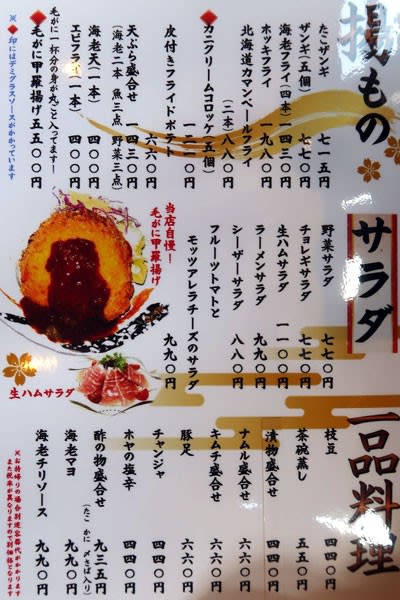 揚もの
たこザンギ 七一五円
ザンギ(五個) 七七〇円
海老フライ(四本) 一四三〇円
ホッキフライ 一九八〇円
北海道カマンベールフライ
(二本) 八八〇円
◆カニクリームコロッケ(五個)
一二一〇円
皮付きフライドポテト
六六〇円
天ぷら盛合せ 一四三〇円
(海老二本 魚三点 野菜三点)
海老天(一本) 四〇〇円
エビフライ(一本) 四〇〇円
毛がに一杯分の身が丸ごと入ってます!
◆毛がに甲羅揚げ 五五〇〇円
※◆印にはデミグラスソースがかかっています
当店自慢!
毛がに甲羅揚げ
サラダ
野菜サラダ 七七〇円
チョレギサラダ 七七〇円
生ハムサラダ 一一〇〇円
ラーメンサラダ 九九〇円
シーザーサラダ 八八〇円
フルーツトマトと
モッツァレラチーズのサラダ
九九〇円
生ハムサラダ
一品料理
枝豆 四四〇円
茶碗蒸し 五五〇円
漬物盛合せ 四四〇円
ナムル盛合せ 六六〇円
キムチ盛合せ 六六〇円
豚足 六六〇円
チャンジャ 四四〇円
ホヤの塩辛 四四〇円
酢の物盛合せ 九三五円
(たこ かに 〆さば入り)
海老マヨ 九九〇円
海老チリソース 九九〇円
※お持帰りの場合別途容器代がかかります
また税率が異なりますので別価格となります